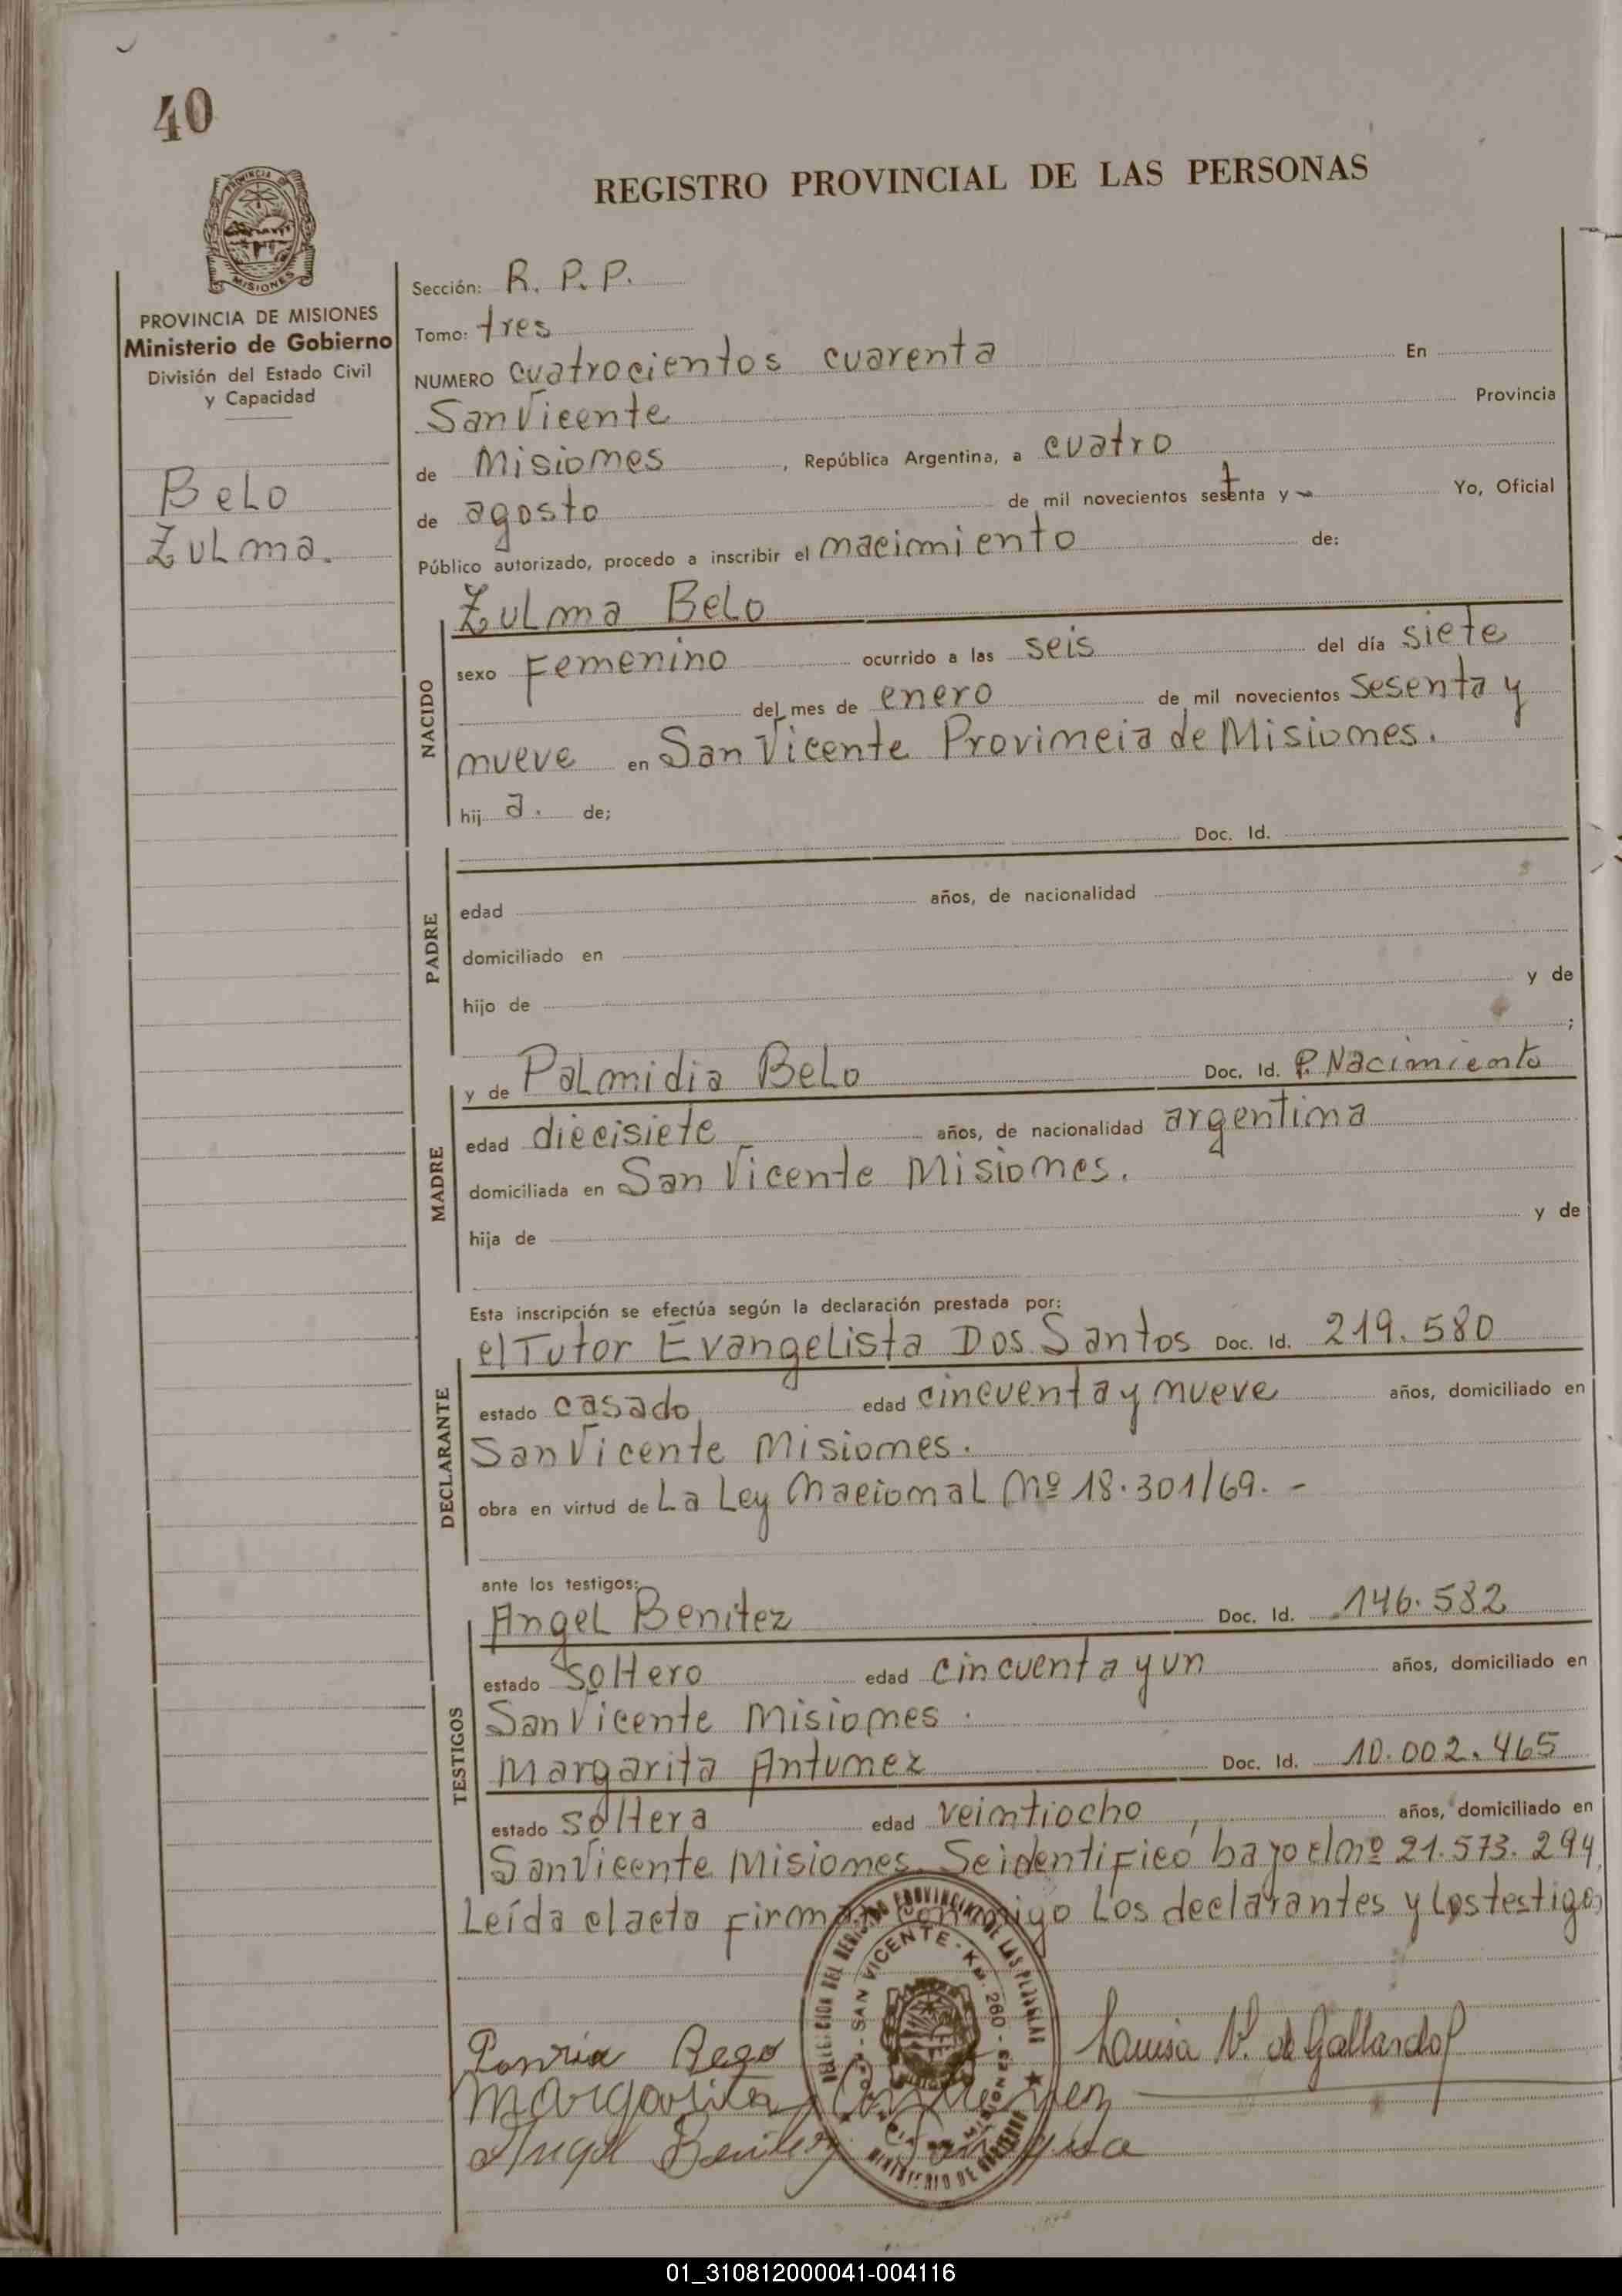 40
REGISTRO PROVINCIAL DE LAS PERSONAS
PROVINCIA DE
MISIONES
PROVINCIA DE MISIONES
Ministerio de Gobierno
División del Estado Civil
y Capacidad
Belo
Zulma.
Sección: R. P. P.
Tomo: tres
NUMERO cuatrocientos cuarenta En
San Vicente Provincia
de Misiones, República Argentina, a cuatro
de agosto de mil novecientos setenta y - Yo, Oficial
Público autorizado, procedo a inscribir el nacimiento de:
Zulma Belo
NACIDO
sexo Femenino ocurrido a las seis del día siete
del mes de enero de mil novecientos sesenta y
nueve en San Vicente Provincia de Misiones.
hij a. de;
Doc. Id.
PADRE
edad años, de nacionalidad
domiciliado en
hijo de y de
;
y de Palmidia Belo Doc. Id. P. Nacimiento
MADRE
edad diecisiete años, de nacionalidad argentina
domiciliada en San Vicente Misiones.
hija de y de
Esta inscripción se efectúa según la declaración prestada por:
el Tutor Evangelista Dos Santos Doc. Id. 219.580
DECLARANTE
estado casado edad cincuenta y nueve años, domiciliado en
San Vicente Misiones.
obra en virtud de La Ley Nacional Nº 18.301/69. -
ante los testigos:
Angel Benitez Doc. Id. 146.582
TESTIGOS
estado soltero edad cincuenta y un años, domiciliado en
San Vicente Misiones.
Margarita Antunez Doc. Id. 10.002.465
estado soltera edad veintiocho, años, domiciliado en
San Vicente Misiones. Se identificó bajo el nº 21.573.294
Leída el acta firman conmigo Los declarantes y los testigos
DEL REGISTRO PROVINCIAL DE LAS PERSONAS
SAN VICENTE - KM. 260 - MISIONES
MINISTERIO DE GOBIERNO
Luisa V. de Gallardo
Margarita
Angel Benitez
01_310812000041-004116